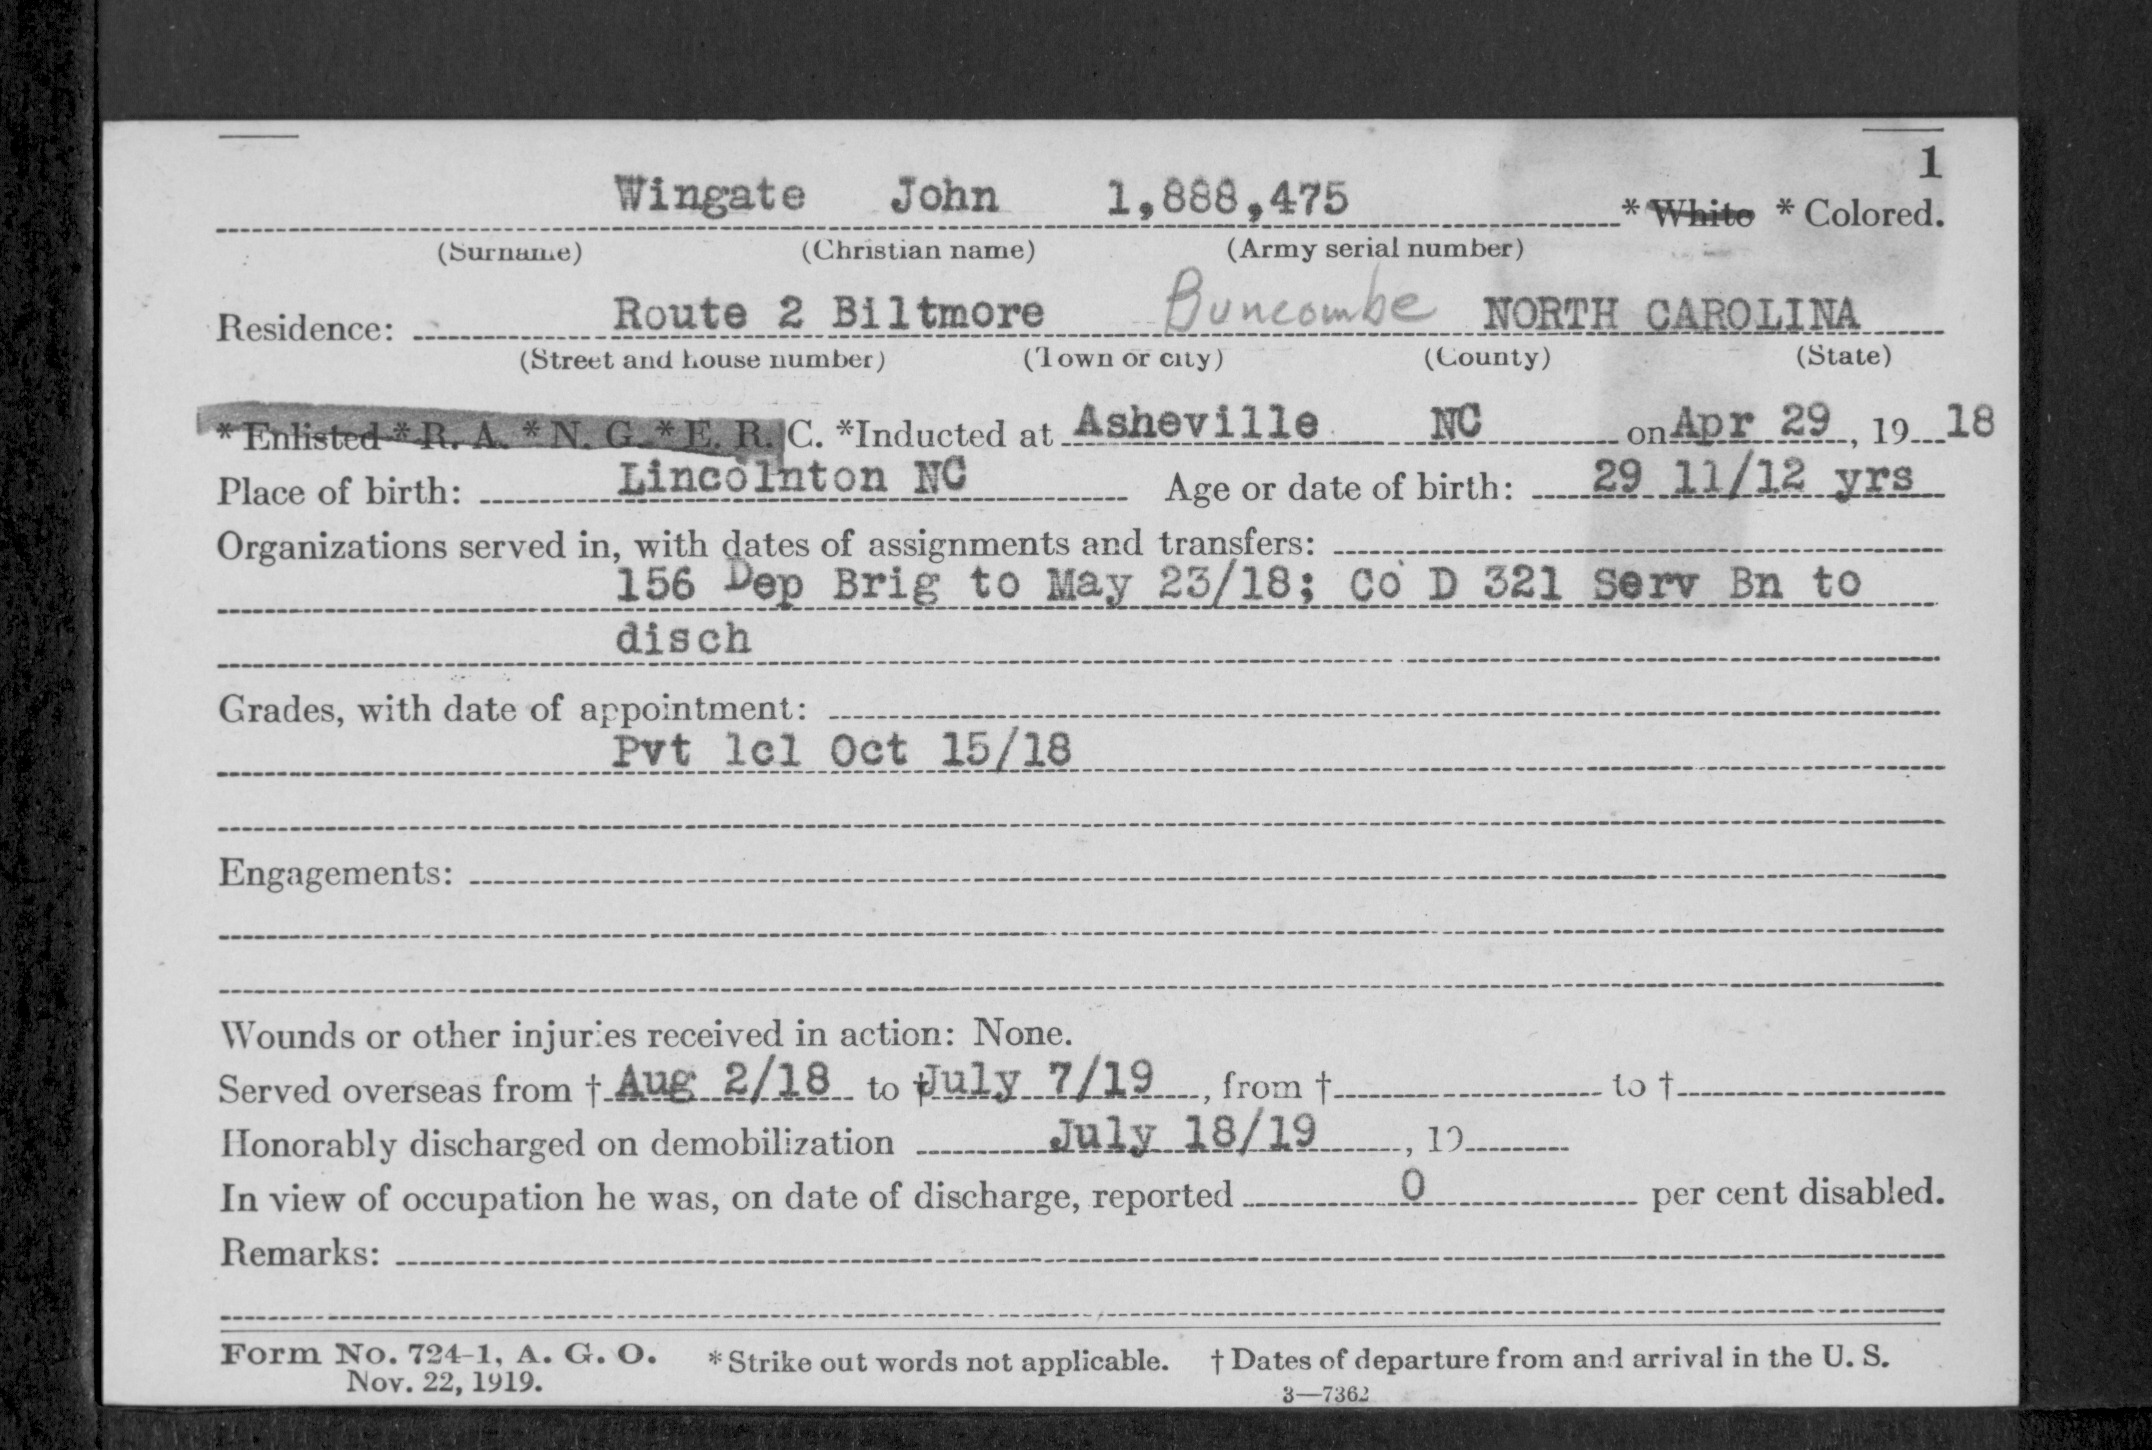 1
Wingate John 1,888,475 * White * Colored.
(Surname) (Christian name) (Army serial number)
Residence: Route 2 Biltmore Buncombe NORTH CAROLINA
(Street and house number) (Town or city) (County) (State)
* Enlisted * R. A. * N. G. * E. R. C. *Inducted at Asheville NC on Apr 29, 19 18
Place of birth: Lincolnton NC Age or date of birth: 29 11/12 yrs
Organizations served in, with dates of assignments and transfers:
156 Dep Brig to May 23/18; Co D 321 Serv Bn to
disch
Grades, with date of appointment:
Pvt 1cl Oct 15/18
Engagements:
Wounds or other injuries received in action: None.
Served overseas from † Aug 2/18 to † July 7/19, from † to †
Honorably discharged on demobilization July 18/19, 19
In view of occupation he was, on date of discharge, reported 0 per cent disabled.
Remarks:
Form No. 724-1, A. G. O. * Strike out words not applicable. † Dates of departure from and arrival in the U. S.
Nov. 22, 1919.
3—7362